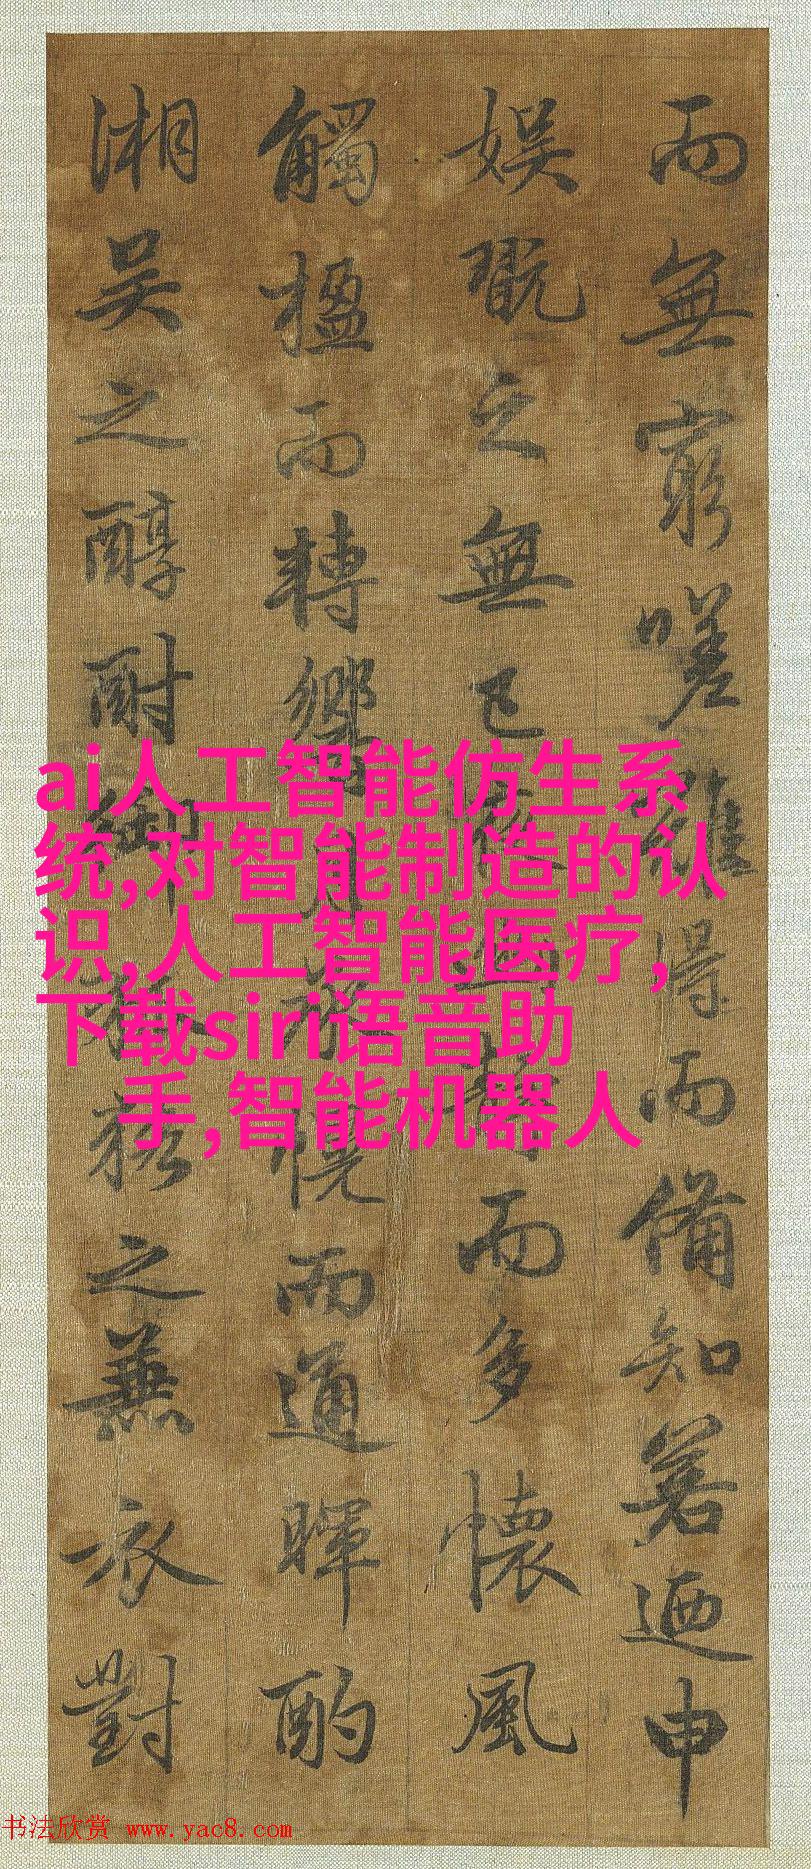 而無窮嗟難得而備知若迺申
娱翫之無已夜幽静而多懷風
觸楹而轉響月承幌而通暉酌
湘吴之醇酎御狐狢之兼衣對
ai人工智能仿生系
统,对智能制造的认
识,人工智能医疗,
下载siri语音助
手,智能机器人
书法欣赏 www.yac8.com